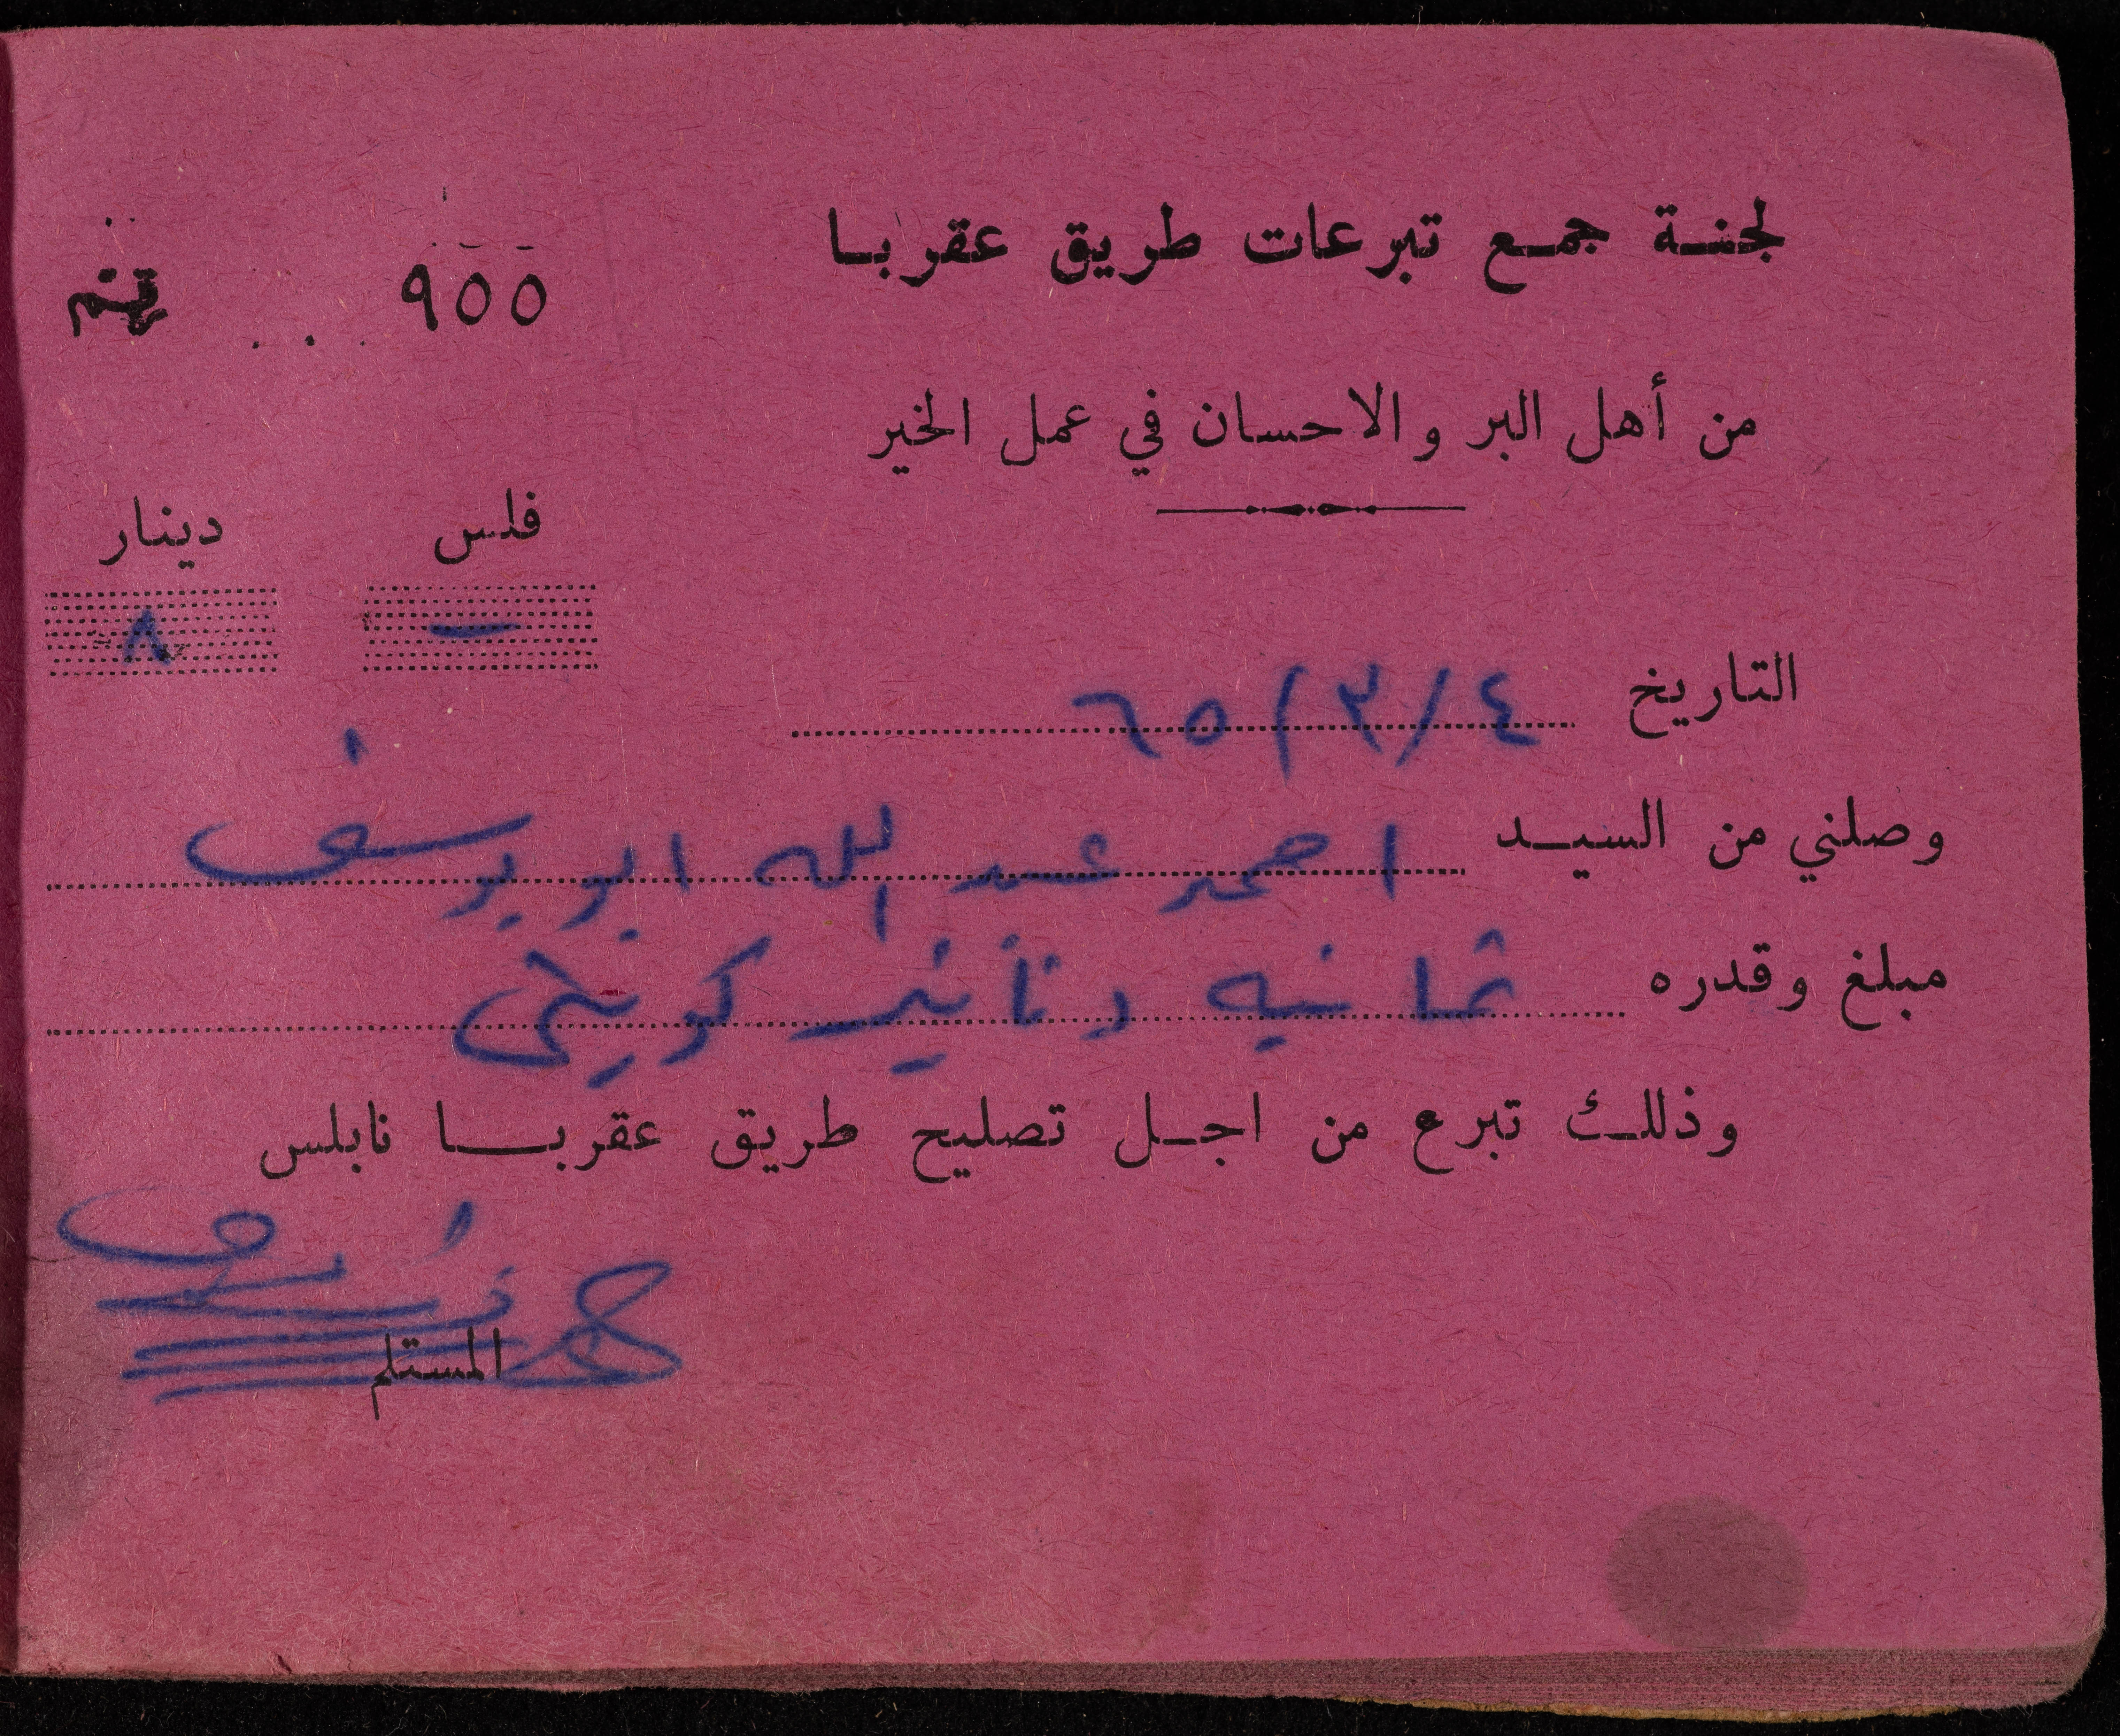 لجنة جمع تبرعات طريق عقربا
٩٥٥
من أهل البر والاحسان في عمل الخير
فلس دينار
— ٨
التاريخ ٤/٣/٦٥
وصلني من السيد احمد عبد الله ابو يوسف
مبلغ وقدره ثمانيه دنانير كويتي
وذلك تبرع من اجل تصليح طريق عقربا نابلس
المستلم